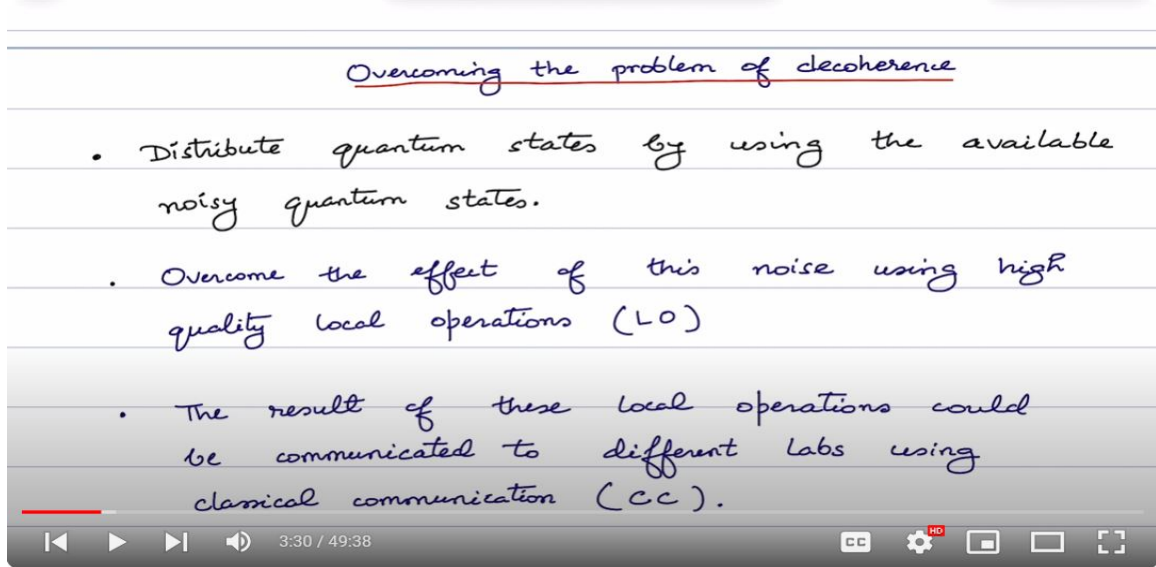 Overcoming the problem of decoherence
• Distribute quantum states by using the available
noisy quantum states.
• Overcome the effect of this noise using high
quality local operations (LO)
• The result of these local operations could
be communicated to different labs using
classical communication (CC).
3:30 / 49:38
CC
HD